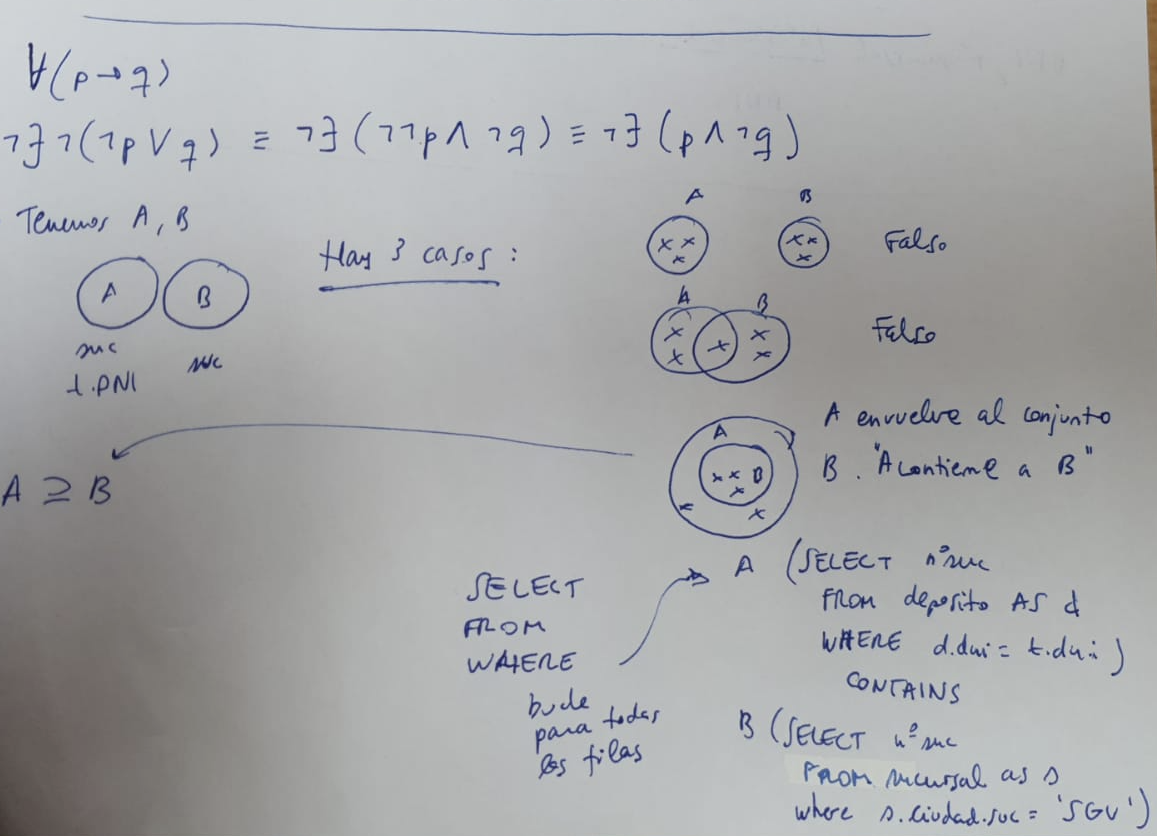 ∀(p→q)
¬∃¬(¬p∨q) ≡ ¬∃(¬¬p∧¬q) ≡ ¬∃(p∧¬q)
Tenemos A, B
A B
suc suc
t.DNI
Hay 3 casos:
A B
Falso
A B
Falso
A
B
A envuelve al conjunto
B. "A contiene a B"
A ⊇ B
SELECT
FROM
WHERE
bucle
para todas
las filas
A (SELECT nºsuc
FROM deposito AS d
WHERE d.dni = t.dni)
CONTAINS
B (SELECT nºsuc
FROM sucursal as s
where s.ciudad.suc = 'SGV')